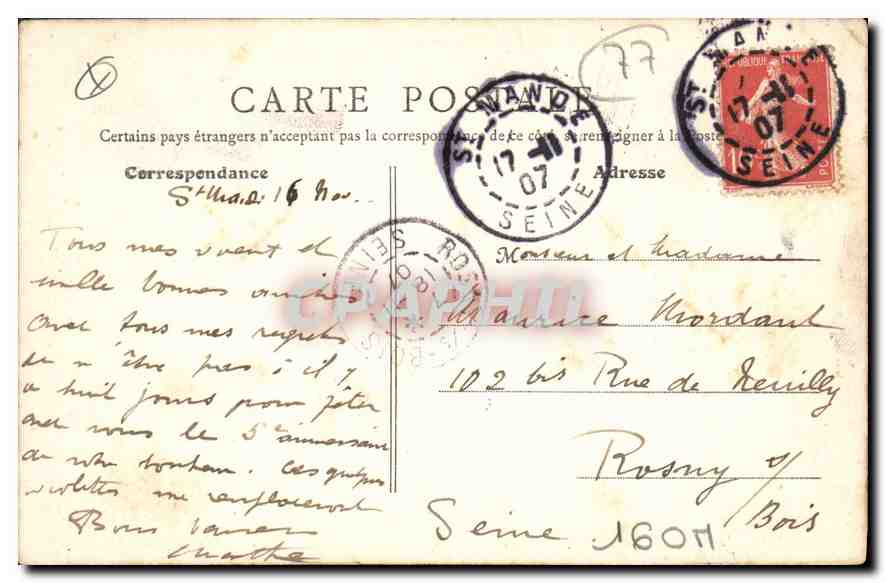 77
CARTE POSTALE
Certains pays étrangers n'acceptant pas la correspondance de ce côté, se renseigner à la Poste
Correspondance
Adresse
St Man. 16 Nov.
Tous mes voeux et
mille bonnes amitiés
avec tous mes regrets
de n'être pas à il y
a huit jours pour fêter
avec vous le 5e anniversaire
de votre bonheur. Ces quelques
violettes me remplaceront
Bons baisers
Marthe
Monsieur et Madame
Maurice Mordant
102 bis Rue de Neuilly
Rosny s/
Bois
Seine
160M
ST MANDE
17-11
07
SEINE
ST MANDE
17-11
07
SEINE
REPUBLIQUE FRANCAISE
ROSNY-S-BOIS
SEINE
18
07
CPAPHIL